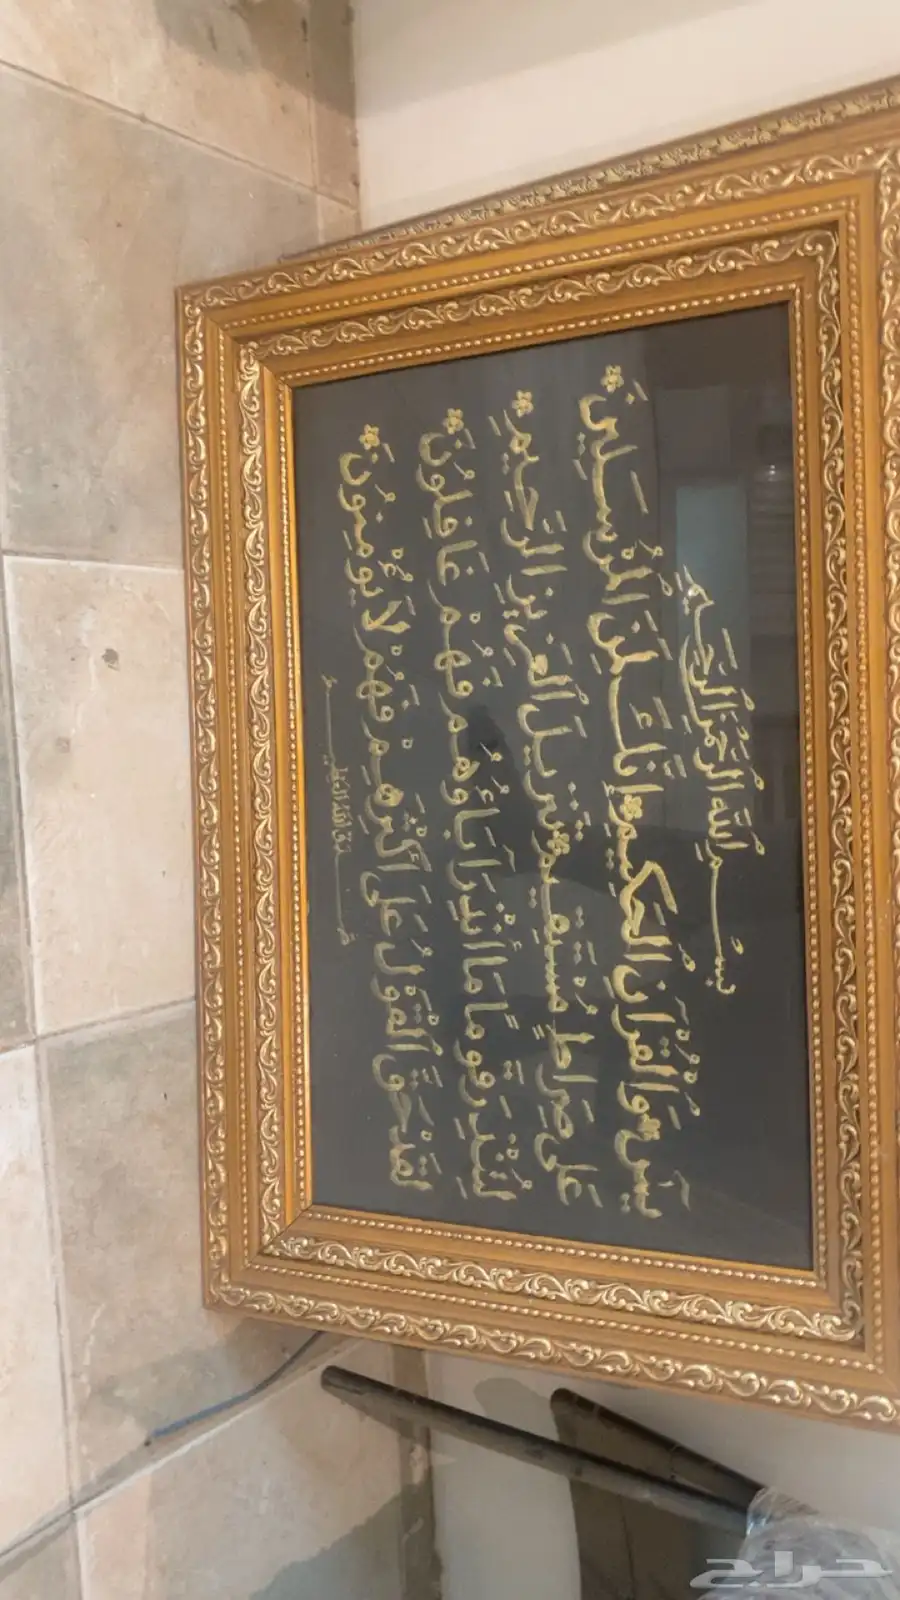 بِسْمِ اللَّهِ الرَّحْمَٰنِ الرَّحِيمِ
يسَ وَالْقُرْآنِ الْحَكِيمِ إِنَّكَ لَمِنَ الْمُرْسَلِينَ
عَلَى صِرَاطٍ مُسْتَقِيمٍ تَنْزِيلَ الْعَزِيزِ الرَّحِيمِ
لِتُنْذِرَ قَوْمًا مَا أُنْذِرَ آبَاؤُهُمْ فَهُمْ غَافِلُونَ
لَقَدْ حَقَّ الْقَوْلُ عَلَى أَكْثَرِهِمْ فَهُمْ لَا يُؤْمِنُونَ
صدق الله العظيم
حراج